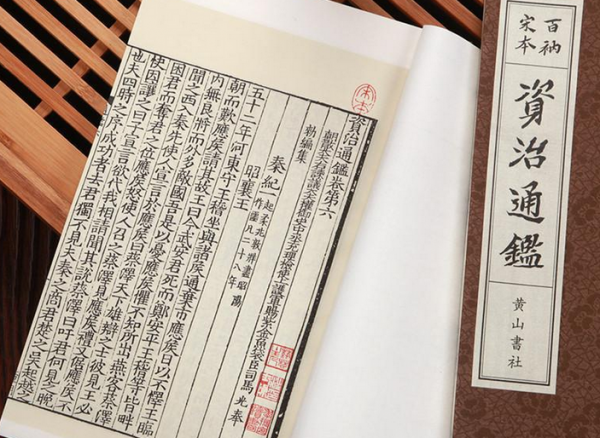 資治通鑑卷第六
朝散大夫右諫議大夫權御史中丞充理檢使上護軍賜紫金魚袋臣司馬光奉
勑編集
秦紀一
起柔兆敦牂盡昭陽
作噩凡二十八年
昭襄王
五十二年河東守王稽坐與諸侯通棄市應侯日以不懌王臨
朝而歎應侯請其故王曰今武安君死而鄭安平王稽等皆畔
內無良將而外多敵國吾是以憂應侯懼不知所出燕客蔡澤
聞之西入秦先使人宣言於應侯曰蔡澤天下雄辯之士彼見王必
困君而奪君之位應侯怒使人召之蔡澤見應侯禮又倨應侯不
快因讓之曰子宣言欲代我相請聞其說蔡澤曰吁君何見之晚
也夫四時之序成功者去君獨不見夫秦之商君楚之吳起越之
宋本
百衲
宋本
資治通鑑
黃山書社